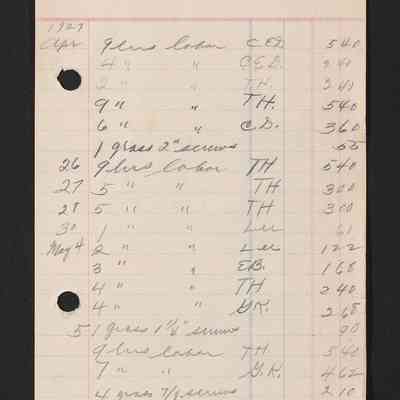 1927
Apr 9 hrs labor C.E.D. 5 40
4 " " C.E.D. 2 40
2 " " T.H.
9 " " T.H. 5 40
6 " " C.D. 3 60
1 grass 2" screws 55
26 9 hrs labor TH 5 40
27 5 " " TH 3 00
28 5 " " TH 3 00
30 1 " " Lee 61
May 4 2 " " Lee 1 22
3 " " E.B. 1 68
4 " " TH 2 40
4 " " G.K. 2 68
5 1 grass 1 1/2" screws 90
9 hrs labor T.H. 5 40
7 " " G.K. 4 62
4 grass 7/8 screws 2 10